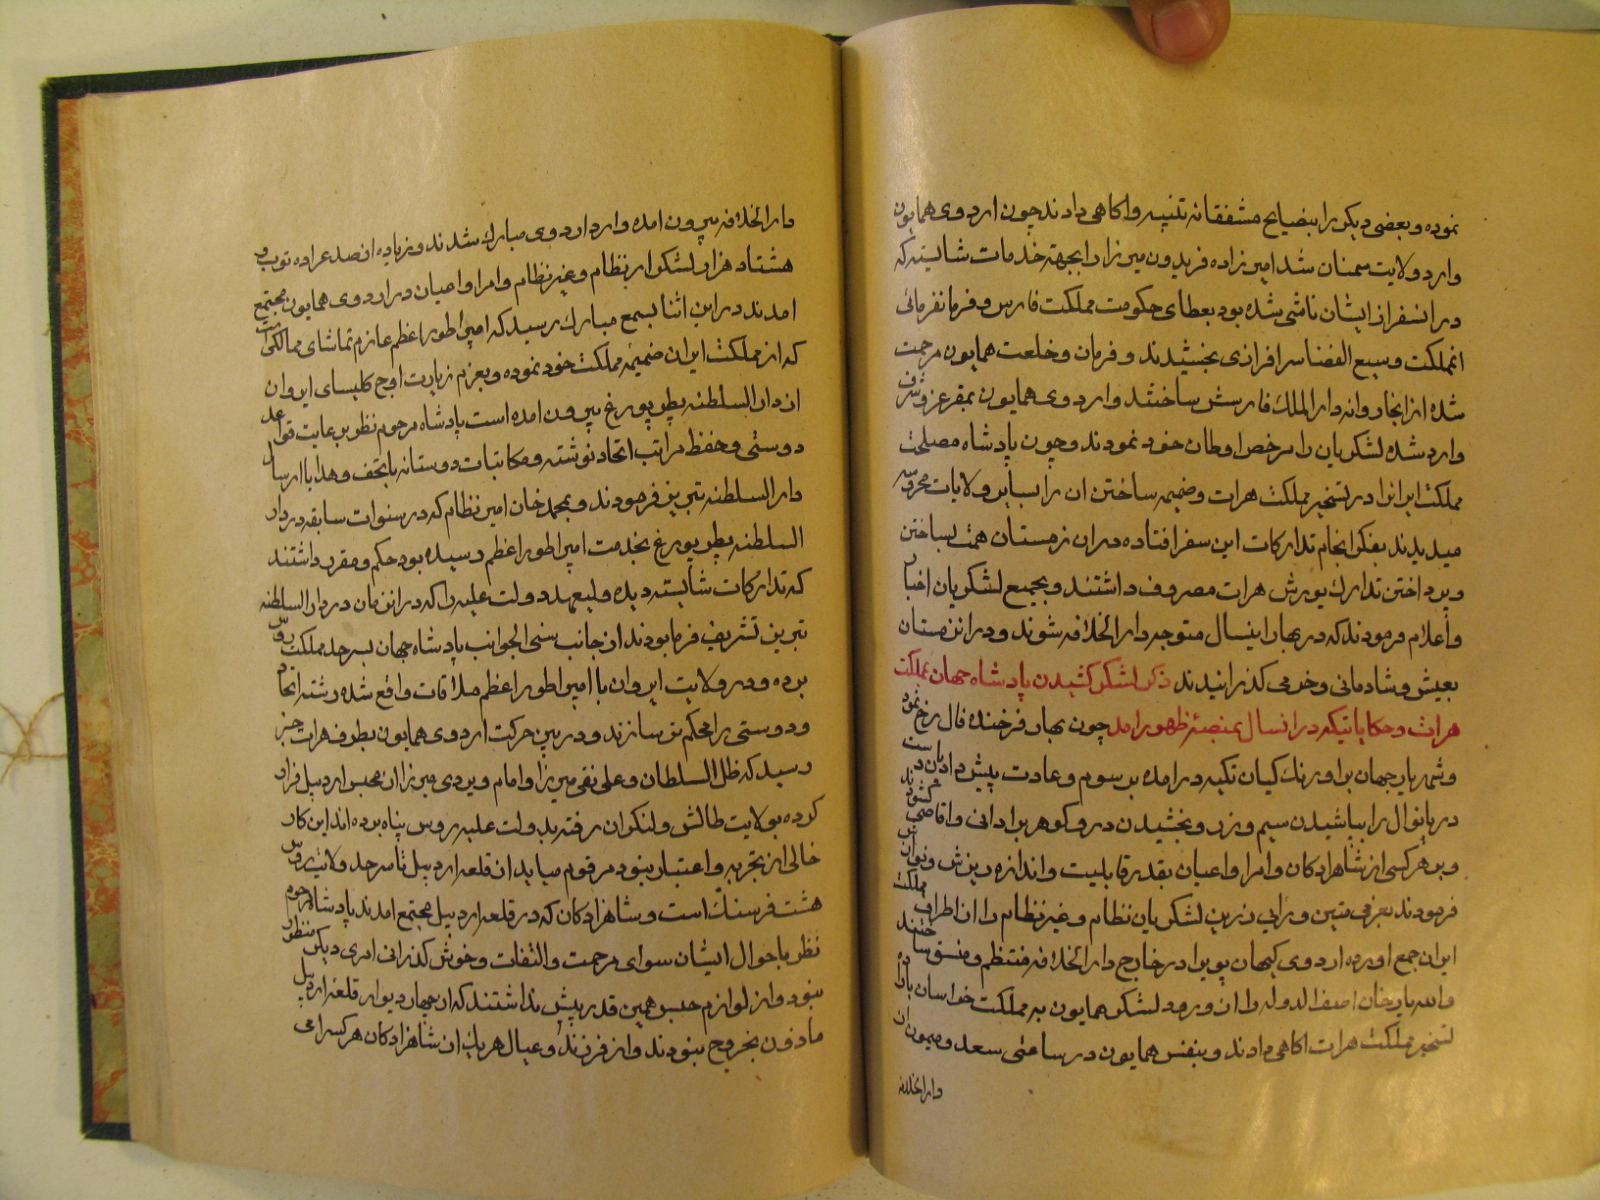 نموده و بعضی دیکر را بنصایح مشفقانه تنبیه و اکاهی دادند چون اردوی همایون
وارد ولایت سمنان شد امیرزاده فریدون میرزا را بجهة خدمات شایسته که
در انسفر از ایشان ناشی شده بود بعطای حکومت مملکت فارس و فرمانفرمائی
انمملکت وسیع الفضا سرافرازی بخشیدند و فرمان و خلعت همایون مرحمت
شده از انجا روانه دار الملک فارسش ساختند و اردوی همایون بمقر عز و شرف
وارد شده لشکریان را مرخص اوطان خود نمودند و چون پادشاه مصلحت
مملکت ایرانرا در تسخیر مملکت هرات و ضمیمه ساختن ان را بسایر ولایات محروسه
میدیدند بفکر انجام تدارکات این سفر افتاده در ان زمستان همت بساختن
و پرداختن تدارک یورش هرات مصروف داشتند و بجمیع لشکریان اخبار
و اعلام فرمودند که در بهار اینسال متوجه دار الخلافه شوند و در انزمستان
بعیش و شادمانی و خرمی کذرانیدند ذکر لشکر کشیدن پادشاه جهان بمملکت
هرات و حکایاتیکه در انسال بمنصهٔ ظهور امد چون بهار فرخنده فال رخ نمود
و شهریار جهان بر اورنک کیان تکیه در امده برسوم و عادت پیش دادن
دریا نوال را بپاشیدن سیم و زر و بخشیدن در و کوهر برادانی و اقاصی کشودند
و بر هر کسی از شاهزادکان و امرا و اعیان بقدر قابلیت و اندازه ریزش و نوازش
فرمودند بعزمی متین و رائی زرین لشکریان نظام و غیر نظام را از اطراف مملکت
ایران جمع اورده اردوی کیهان پوی را در خارج دار الخلافه منتظم و منسق ساختند
و الله یار خان اصف الدوله را از ورود لشکر همایون به مملکت خراسان باراده
تسخیر مملکت هرات اکاهی دادند و بنفس همایون در ساعتی سعد و میمون از
دار الخلافه
دار الخلافه بیرون امده وارد اردوی مبارک شدند و زیاده از صد عراده توپ و
هشتاد هزار لشکر از نظام و غیر نظام و امرا و اعیان در اردوی همایون مجتمع
امدند در این اثنا بسمع مبارک رسید که امپراطور اعظم عازم تماشای ممالکی است
که از مملکت ایران ضمیمه مملکت خود نموده و بعزم زیارت اوج کلیسای ایروان
از دار السلطنه پطرپورغ بیرون امده است پادشاه مرحوم نظر برعایت قواعد
دوستی و حفظ مراتب اتحاد نوشته و مکاتبات دوستانه با تحف و هدایا ارسال
دار السلطنه تبریز فرمودند و بمحمد خان امیر نظام که در سنوات سابقه در دار
السلطنه پطرپورغ بخدمت امپراطور اعظم رسیده بود حکم و مقرر داشتند
که تدارکات شایسته دیده ولیعهد دولت علیه را که در انزمان در دار السلطنه
تبریز تشریف فرما بودند از جانب سنی الجوانب پادشاه جهان بسرحد مملکت روس
برده و در ولایت ایروان با امپراطور اعظم ملاقات واقع شده رشته اتحاد
و دوستی را محکم تر سازند و در بین حرکت اردوی همایون بطرف هرات خبر
رسید که ظل السلطان و علی نقی میرزا و امام ویردی میرزا از محبس اردبیل فرار
کرده بولایت طالش و لنکران رفته بدولت علیه روس پناه برده اند این کار
خالی از تجربه و اعتبار نبود مرقوم میاید از قلعه اردبیل تا سرحد ولایت روس
هشت فرسنک است و شاهزادکان که در قلعه اردبیل مجتمع امدند پادشاه مرحوم
نظر باحوال ایشان سوای مرحمت و التفات و خوش کذرانی امری دیکر منظور
نبود و از لوازم حبس همین قدر بیش نداشتند که از چهار دیوار قلعه اردبیل
ماذون بخروج نبودند و از فرزند و عیال هر یک از شاهزادکان هر کس را می